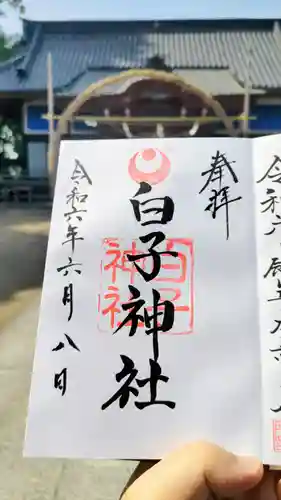 奉拝
白子神社
白子
神社
令和六年六月八日